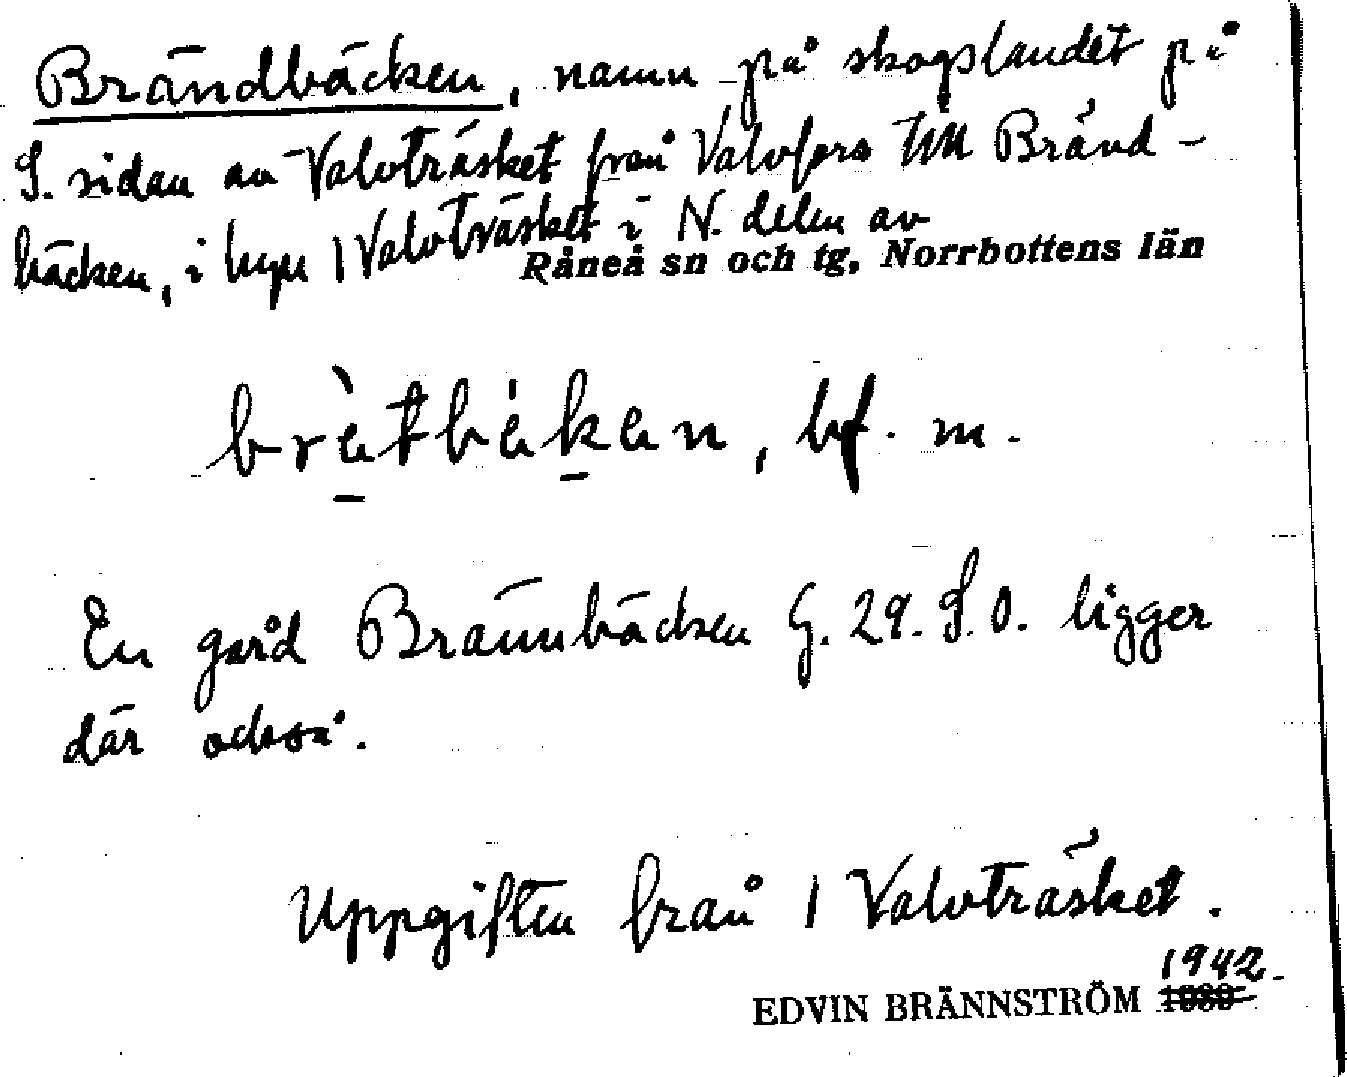 Brändbäcken, namn på skogslandet på
S. sidan av Valvträsket från Valvfors till Bränd-
bäcken, i byn 1 Valvträsket i N. delen av
Råneå sn och tg, Norrbottens län
brètbèken, bf. m.
En gård Brännbäcken G. 29. S.O. ligger
där också.
Uppgiften från 1 Valvträsket.
1942.
EDVIN BRÄNNSTRÖM 1939